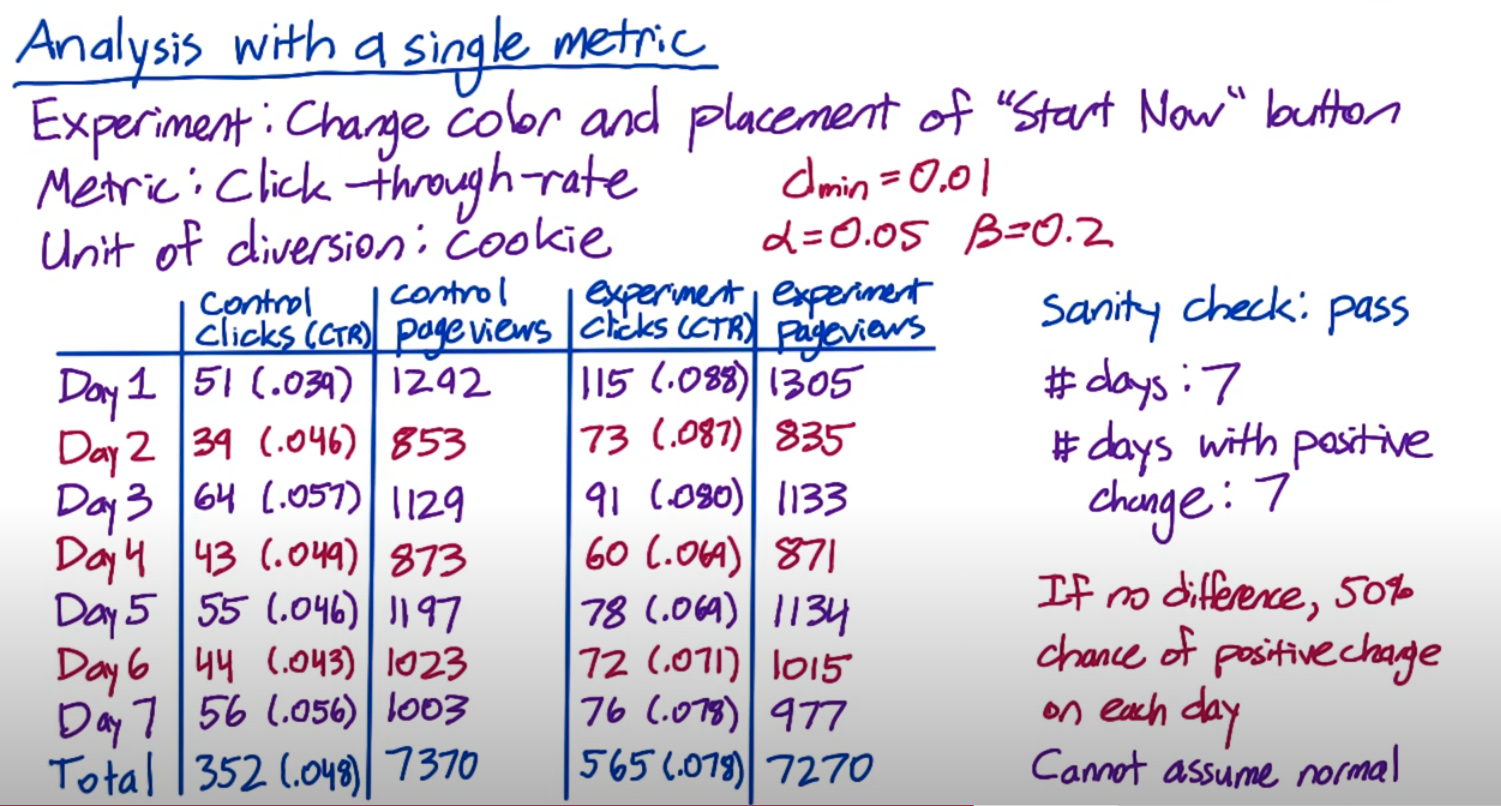 Analysis with a single metric
Experiment: Change color and placement of "Start Now" button
Metric: Click-through-rate
dmin = 0.01
Unit of diversion: cookie
α=0.05 β=0.2
control clicks (CTR) | control pageviews | experiment clicks (CTR) | experiment pageviews
Day 1 | 51 (.039) | 1292 | 115 (.088) | 1305
Day 2 | 39 (.046) | 853 | 73 (.087) | 835
Day 3 | 64 (.057) | 1129 | 91 (.080) | 1133
Day 4 | 43 (.049) | 873 | 60 (.069) | 871
Day 5 | 55 (.046) | 1197 | 78 (.069) | 1134
Day 6 | 44 (.043) | 1023 | 72 (.071) | 1015
Day 7 | 56 (.056) | 1003 | 76 (.078) | 977
Total | 352 (.048) | 7370 | 565 (.078) | 7270
Sanity check: pass
# days: 7
# days with positive
change: 7
If no difference, 50%
chance of positive change
on each day
Cannot assume normal